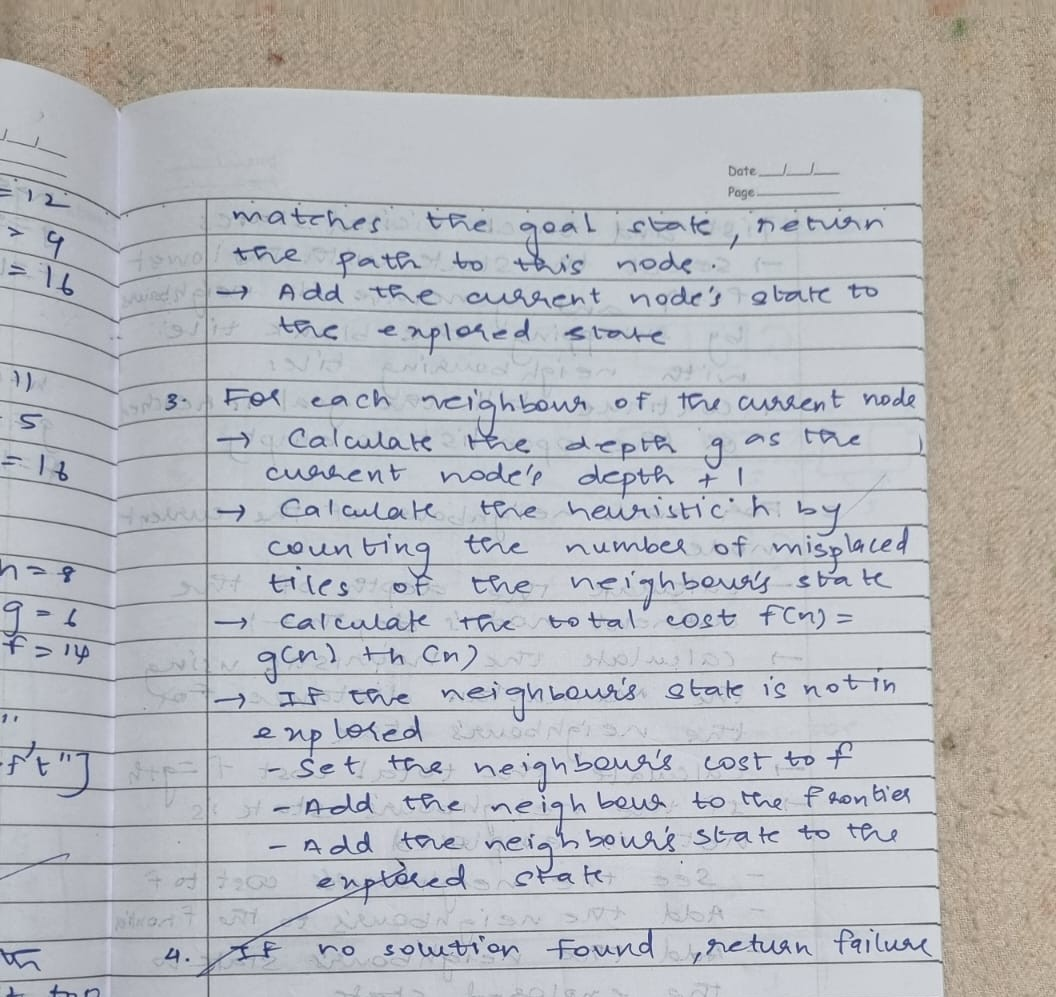 Date
Page
= 12
= 9
= 16
5
h = 8
g = 6
f = 14
matches the goal state, return
the path to this node.
→ Add the current node's state to
the explored state
3. For each neighbour of the current node
→ Calculate the depth g as the
current node's depth + 1
→ Calculate the heuristic h by
counting the number of misplaced
tiles of the neighbour's state
→ calculate the total cost f(n) =
g(n) + h(n)
→ If the neighbour's state is not in
explored
- Set the neighbour's cost to f
- Add the neighbour to the frontier
- Add the neighbour's state to the
explored state
4. If no solution found, return failure